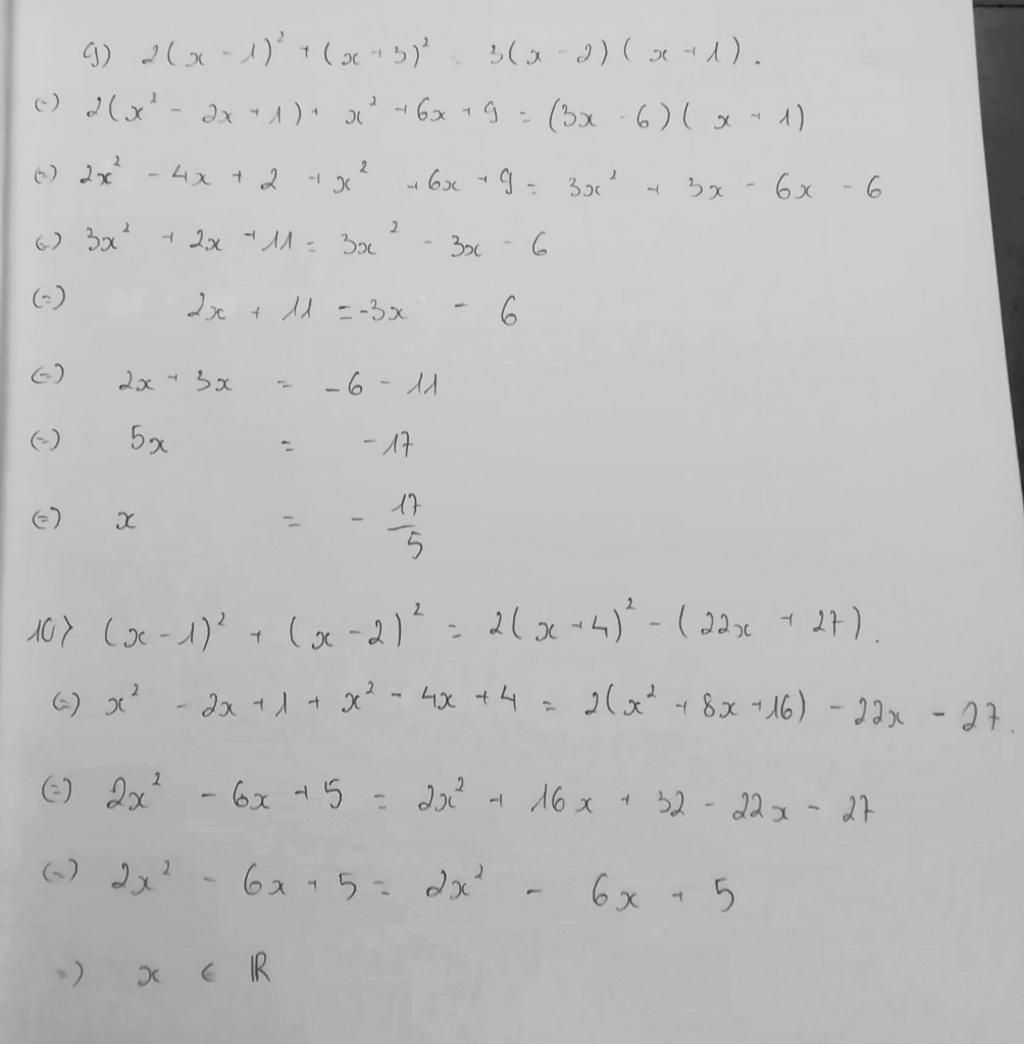 9) 2(x - 1)² + (x + 3)² = 3(x - 2)(x + 1).
(=) 2(x² - 2x + 1) + x² + 6x + 9 = (3x - 6)(x + 1)
(=) 2x² - 4x + 2 + x² + 6x + 9 = 3x² + 3x - 6x - 6
(=) 3x² + 2x + 11 = 3x² - 3x - 6
(=) 2x + 11 = -3x - 6
(=) 2x + 3x = -6 - 11
(=) 5x = -17
(=) x = - 17/5
10) (x - 1)² + (x - 2)² = 2(x + 4)² - (22x + 27).
(=) x² - 2x + 1 + x² - 4x + 4 = 2(x² + 8x + 16) - 22x - 27.
(=) 2x² - 6x + 5 = 2x² + 16x + 32 - 22x - 27
(=) 2x² - 6x + 5 = 2x² - 6x + 5
=) x ∈ ℝ